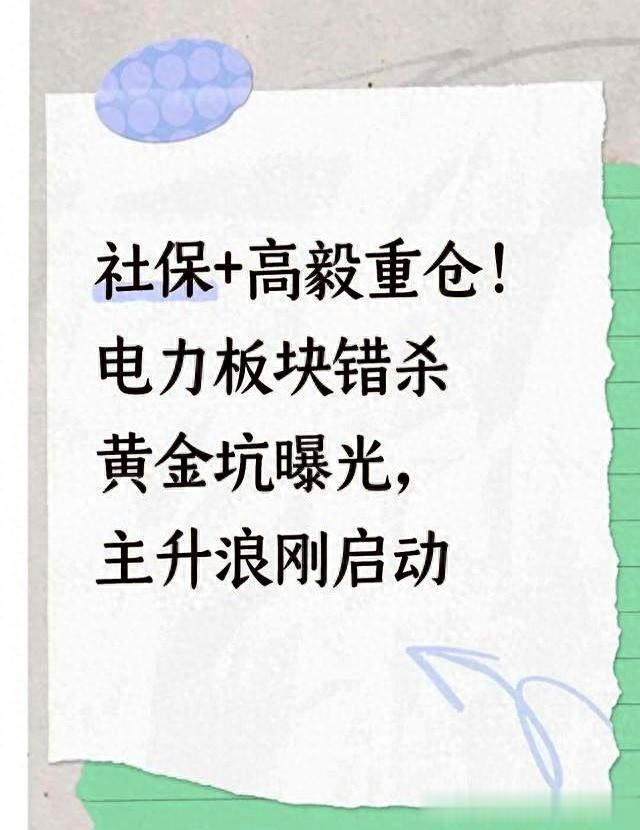 社保+高毅重仓!
电力板块错杀
黄金坑曝光,
主升浪刚启动